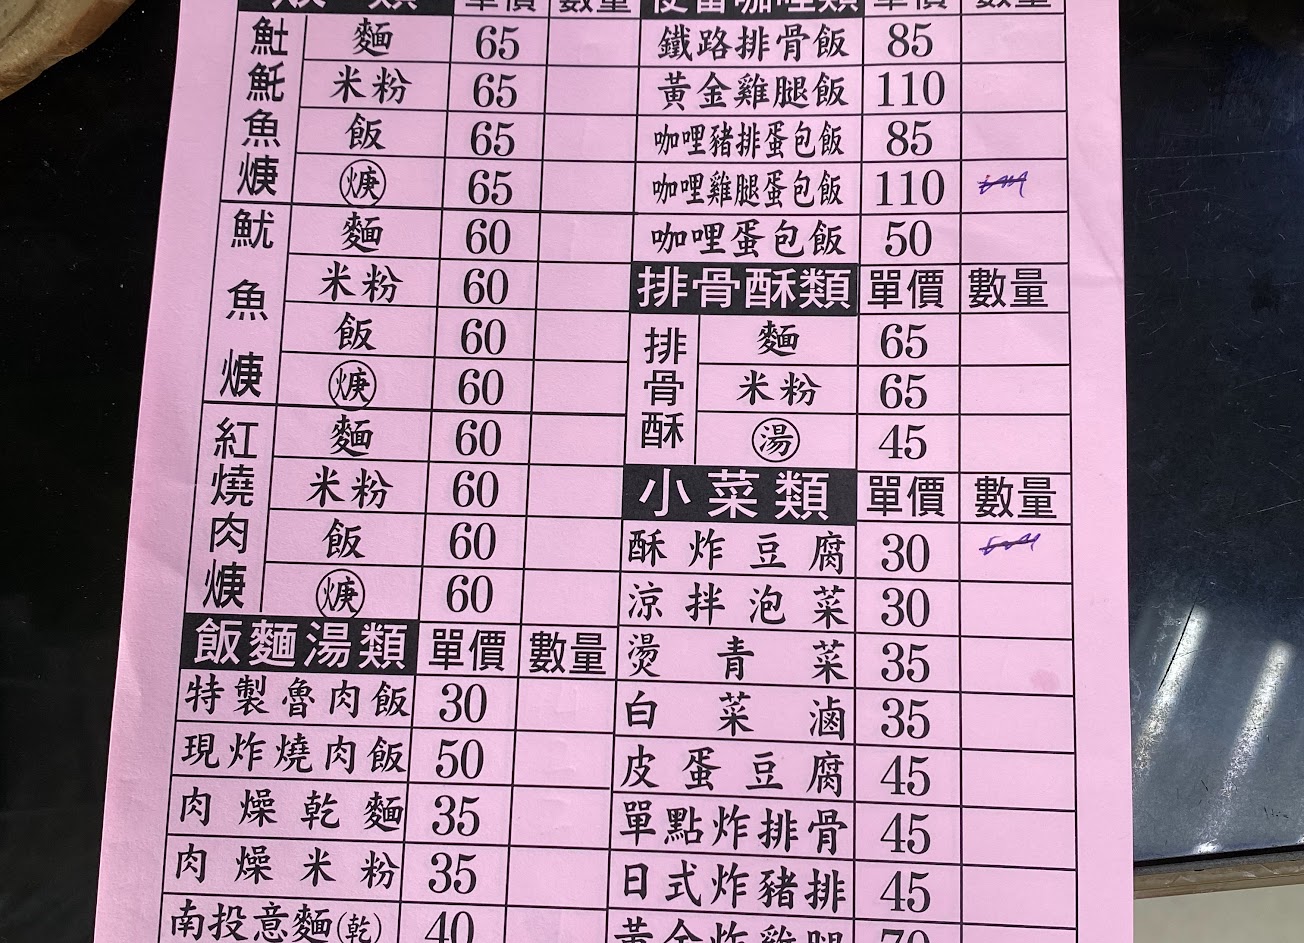 類 單價 數量
魠魠魚焿
麵 65
米粉 65
飯 65
焿 65
魷魚焿
麵 60
米粉 60
飯 60
焿 60
紅燒肉焿
麵 60
米粉 60
飯 60
焿 60
飯麵湯類 單價 數量
特製魯肉飯 30
現炸燒肉飯 50
肉燥乾麵 35
肉燥米粉 35
南投意麵(乾) 40
便當咖哩類 單價 數量
鐵路排骨飯 85
黃金雞腿飯 110
咖哩豬排蛋包飯 85
咖哩雞腿蛋包飯 110
咖哩蛋包飯 50
排骨酥類 單價 數量
排骨酥
麵 65
米粉 65
湯 45
小菜類 單價 數量
酥炸豆腐 30
涼拌泡菜 30
燙青菜 35
白菜滷 35
皮蛋豆腐 45
單點炸排骨 45
日式炸豬排 45
黃金炸雞腿 70